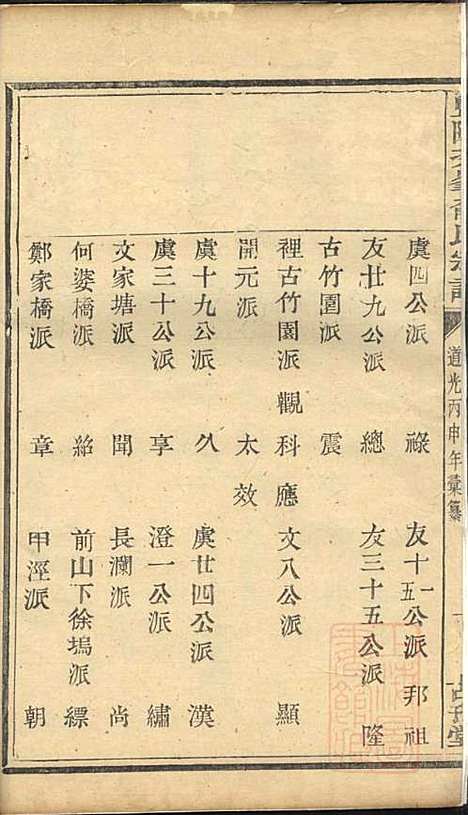 宗譜
道光丙申年彙纂
虞四公派 祿 友十一五公派 邦祖
友廿九公派 總 友三十五公派 隆
古竹園派 震
裡古竹園派 觀科應 文八公派 顯
開元派 太效
虞十九公派 久 虞廿四公派 漢
虞三十公派 享 澄一公派 繡
文家塘派 聞 長瀾派 尚
何婆橋派 紹 前山下徐塢派 縹
鄭家橋派 章 甲涇派 朝